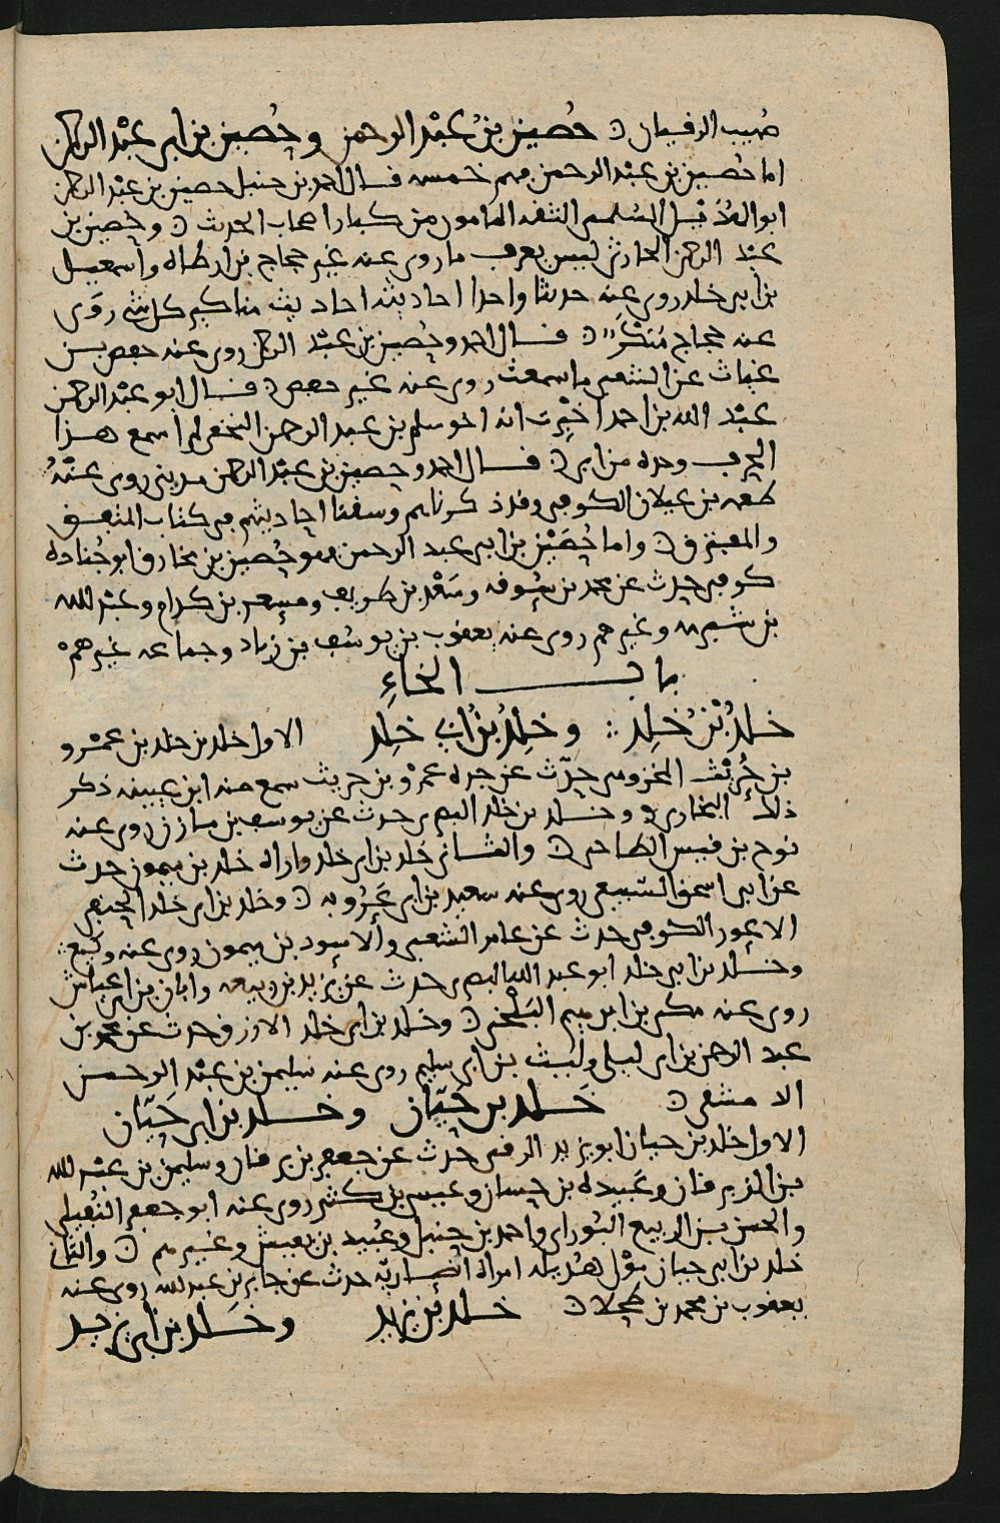 حُصين بنُ عبْد الرحمن وحُصين بن ابي عبْد الرحمن
اما حُصين بن عبْد الرحمن فهم خمسه قال احمد بن حنبل حصين بن عبْد الرحمن
ابو الهذيل السلمي الثقه المامون من كبار اصحاب الحديث وحصين بن
عبْد الرحمن الحارثي ليس يعرف ما روى عنه غير حجاج بن ارطاه واسمعيل
بن ابي خلد روى عنه حديثا واحدا احاديثه احاديث مناكير كل شي روَى
عنه حجاج مُنْكَرٌ قال احمد وحُصين بن عبْد الرحمن روى عنه حفص بن
غياث عن الشعبي ما سمعت روى عنه غير حفص قال ابو عبْد الرحمن
عبْد الله بن احمد اخبرت انه اخو سلم بن عبد الرحمن النخعي لم اسمع هذا
الحرف وحده من ابي قال احمد وحصين بن عبْد الرحمن مديني روى عنْهُ
طعمه بن غيلان الكوفي وقد ذكرناهم وسقنا احاديثهم في كتاب المتفق
والمفترق واما حُصَيْن بن ابي عبد الرحمن فهو حُصين بن مخارق ابو جُناده
كوفي حدث عن محمد بن سُوقه وسَعْد بن طريف ومِسعر بن كدام وعبْد الله
بن شبرمه وغيرهم روى عنه يعقوب بن يوسُف بن زياد وجماعه غيرهم
باب الخاءِ
خلدُ بْنُ خلِد وخلِدُ بنُ ابي خلِد الاول خلد بن خلد بن عمْرو
بن حُرَيْث المخزومي حدّث عن جده عمْرو بن حريث سمع منه ابن عيينه ذكر
ذلك البخاري وخلد بن خلد البصري حدث عن يوسف بن مازن روى عنه
نوح بن قيس الطاحي والثاني خلد بن ابي خلد واراه خلد بن ميمون حدث
عن ابي اسحق السّبيعي روى عنه سعيد بن ابي عَرُوبه وخلد بن ابي خلد الحنفي
الاعور الكوفي حدث عن عامر الشعبي والاسود بن ميمون روى عنه وكيع
وخلد بن ابي خلد ابو عبد الله البصري حدث عن يزيد بن ربيعه وابان بن ابي عياش
روى عنه مكي بن ابرهيم البَلْخي وخلد بن ابي خلد الازرق حدث عن محمد بن
عبد الرحمن بن ابي ليلى وليث بن ابي سليم روى عنه سليمن بن عبْد الرحمن
الدمشقي خَلد بن حَيّان وخلد بن ابي حَيّان
الاول خلد بن حيان ابو يزيد الرقي حدث عن جعفر بن برقان وسليمن بن عبْد الله
بن الزبرقان وعَبيده بن حسان وعيسى بن كثير روى عنه ابو جعفر النُفيلي
والحسن بن الربيع البُوراني واحمد بن حنبل وعُبيد بن يعيش وغيرهم والثاني
خلد بن ابي حيان موْلى هُذيله امراه انصاريّه حدث عن جابر بن عبد الله روى عنه
يعقوب بن محمد بن طحلا خلد بْن يزيد وخلد بن ابي يزيد